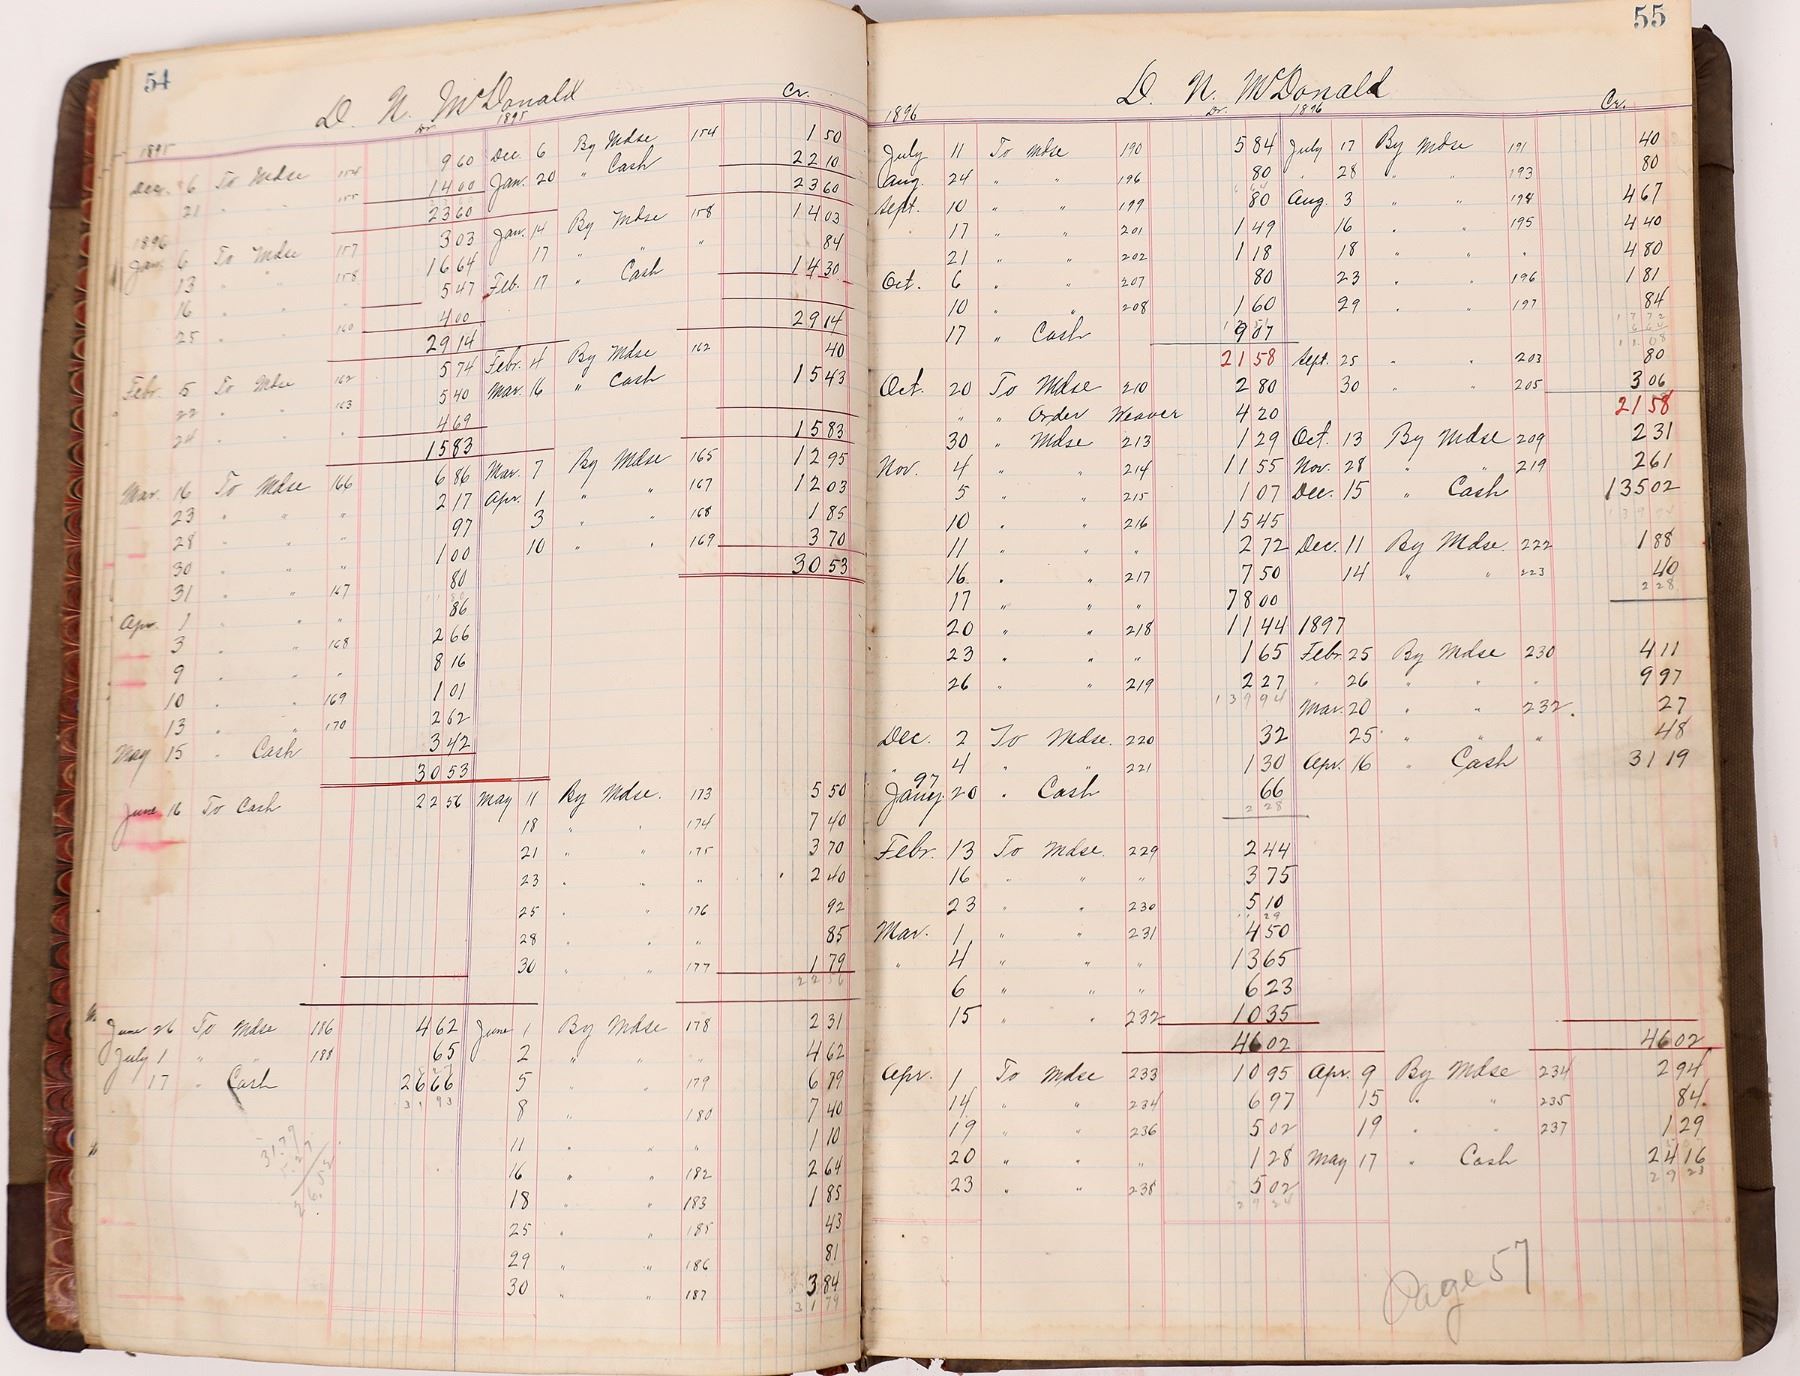 54
D. N. McDonald
Cr.
1895 Dr. 1895
Dec. 6 To Mdse 154 9 60 Dec. 6 By Mdse 154 1 50
21 " " 155 14 00 Jan. 20 " Cash 22 10
23 60 23 60
1896
Jan. 6 To Mdse 157 3 03 Jan. 14 By Mdse 158 14 03
13 " " 158 16 64 17 " " " 84
16 " " " 5 47 Feb. 17 " Cash 14 30
25 " " 160 4 00
29 14 29 14
Febr. 5 To Mdse 162 5 74 Febr. 4 By Mdse 162 40
22 " " 163 5 40 Mar. 16 " Cash 15 43
24 " " " 4 69
15 83 15 83
Mar. 16 To Mdse 166 6 86 Mar. 7 By Mdse 165 12 95
23 " " " 2 17 Apr. 1 " " 167 12 03
28 " " " 97 3 " " 168 1 85
30 " " " 1 00 10 " " 169 3 70
31 " " 167 80 30 53
Apr. 1 " " " 86
3 " " 168 2 66
9 " " " 8 16
10 " " 169 1 01
13 " " 170 2 62
May 15 " Cash 3 42
30 53
June 16 To Cash 22 56 May 11 By Mdse. 173 5 50
18 " " 174 7 40
21 " " 175 3 70
23 " " " 2 40
25 " " 176 92
28 " " " 85
30 " " 177 1 79
22 56
June 26 To Mdse 186 4 62 June 1 By Mdse 178 2 31
July 1 " " 188 65 2 " " " 4 62
17 " Cash 26 66 5 " " 179 6 79
31 93 8 " 180 7 40
11 " " " 1 10
16 " " 182 2 64
18 " " 183 1 85
25 " " 185 43
29 " " 186 81
30 " " 187 3 84
31 79
55
D. N. McDonald
1896 Dr. 1896 Cr.
July 11 To mdse 190 5 84 July 17 By Mdse 191 40
Aug. 24 " " 196 80 " 28 " " 193 80
Sept. 10 " " 199 80 Aug. 3 " " 194 4 67
17 " " 201 1 49 16 " " 195 4 40
21 " " 202 1 18 18 " " " 4 80
Oct. 6 " " 207 80 23 " " 196 1 81
10 " " 208 1 60 29 " " 197 84
17 " Cash 9 07
21 58 Sept. 25 " " 203 80
Oct. 20 To Mdse 210 2 80 30 " " 205 3 06
" " Order Weaver 4 20 21 58
30 " Mdse 213 1 29 Oct. 13 By Mdse 209 2 31
Nov. 4 " " 214 11 55 Nov. 28 " " 219 2 61
5 " " 215 1 07 Dec. 15 " Cash 135 02
10 " " 216 15 45
11 " " " 2 72 Dec. 11 By Mdse. 222 1 88
16 " " 217 7 50 14 " " 223 40
17 " " " 78 00 2 28
20 " " 218 11 44 1897
23 " " " 1 65 Febr. 25 By Mdse 230 4 11
26 " " 219 2 27 " 26 " " " 9 97
139 94 Mar. 20 " " 232 27
Dec. 2 To Mdse. 220 32 25 " " " 48
" 4 " " 221 1 30 Apr. 16 " Cash 31 19
97
Jany 20 " Cash 66
2 28
Febr. 13 To Mdse. 229 2 44
16 " " " 3 75
23 " " 230 5 10
Mar. 1 " " 231 4 50
" 4 " " " 13 65
6 " " " 6 23
15 " " 232 10 35
46 02 46 02
Apr. 1 To Mdse 233 10 95 Apr. 9 By Mdse 234 2 94
14 " " 234 6 97 15 " " 235 84
19 " " 236 5 02 19 " " 237 1 29
20 " " " 1 28 May 17 " Cash 24 16
23 " " 238 5 02 29 23
29 24
Page 57